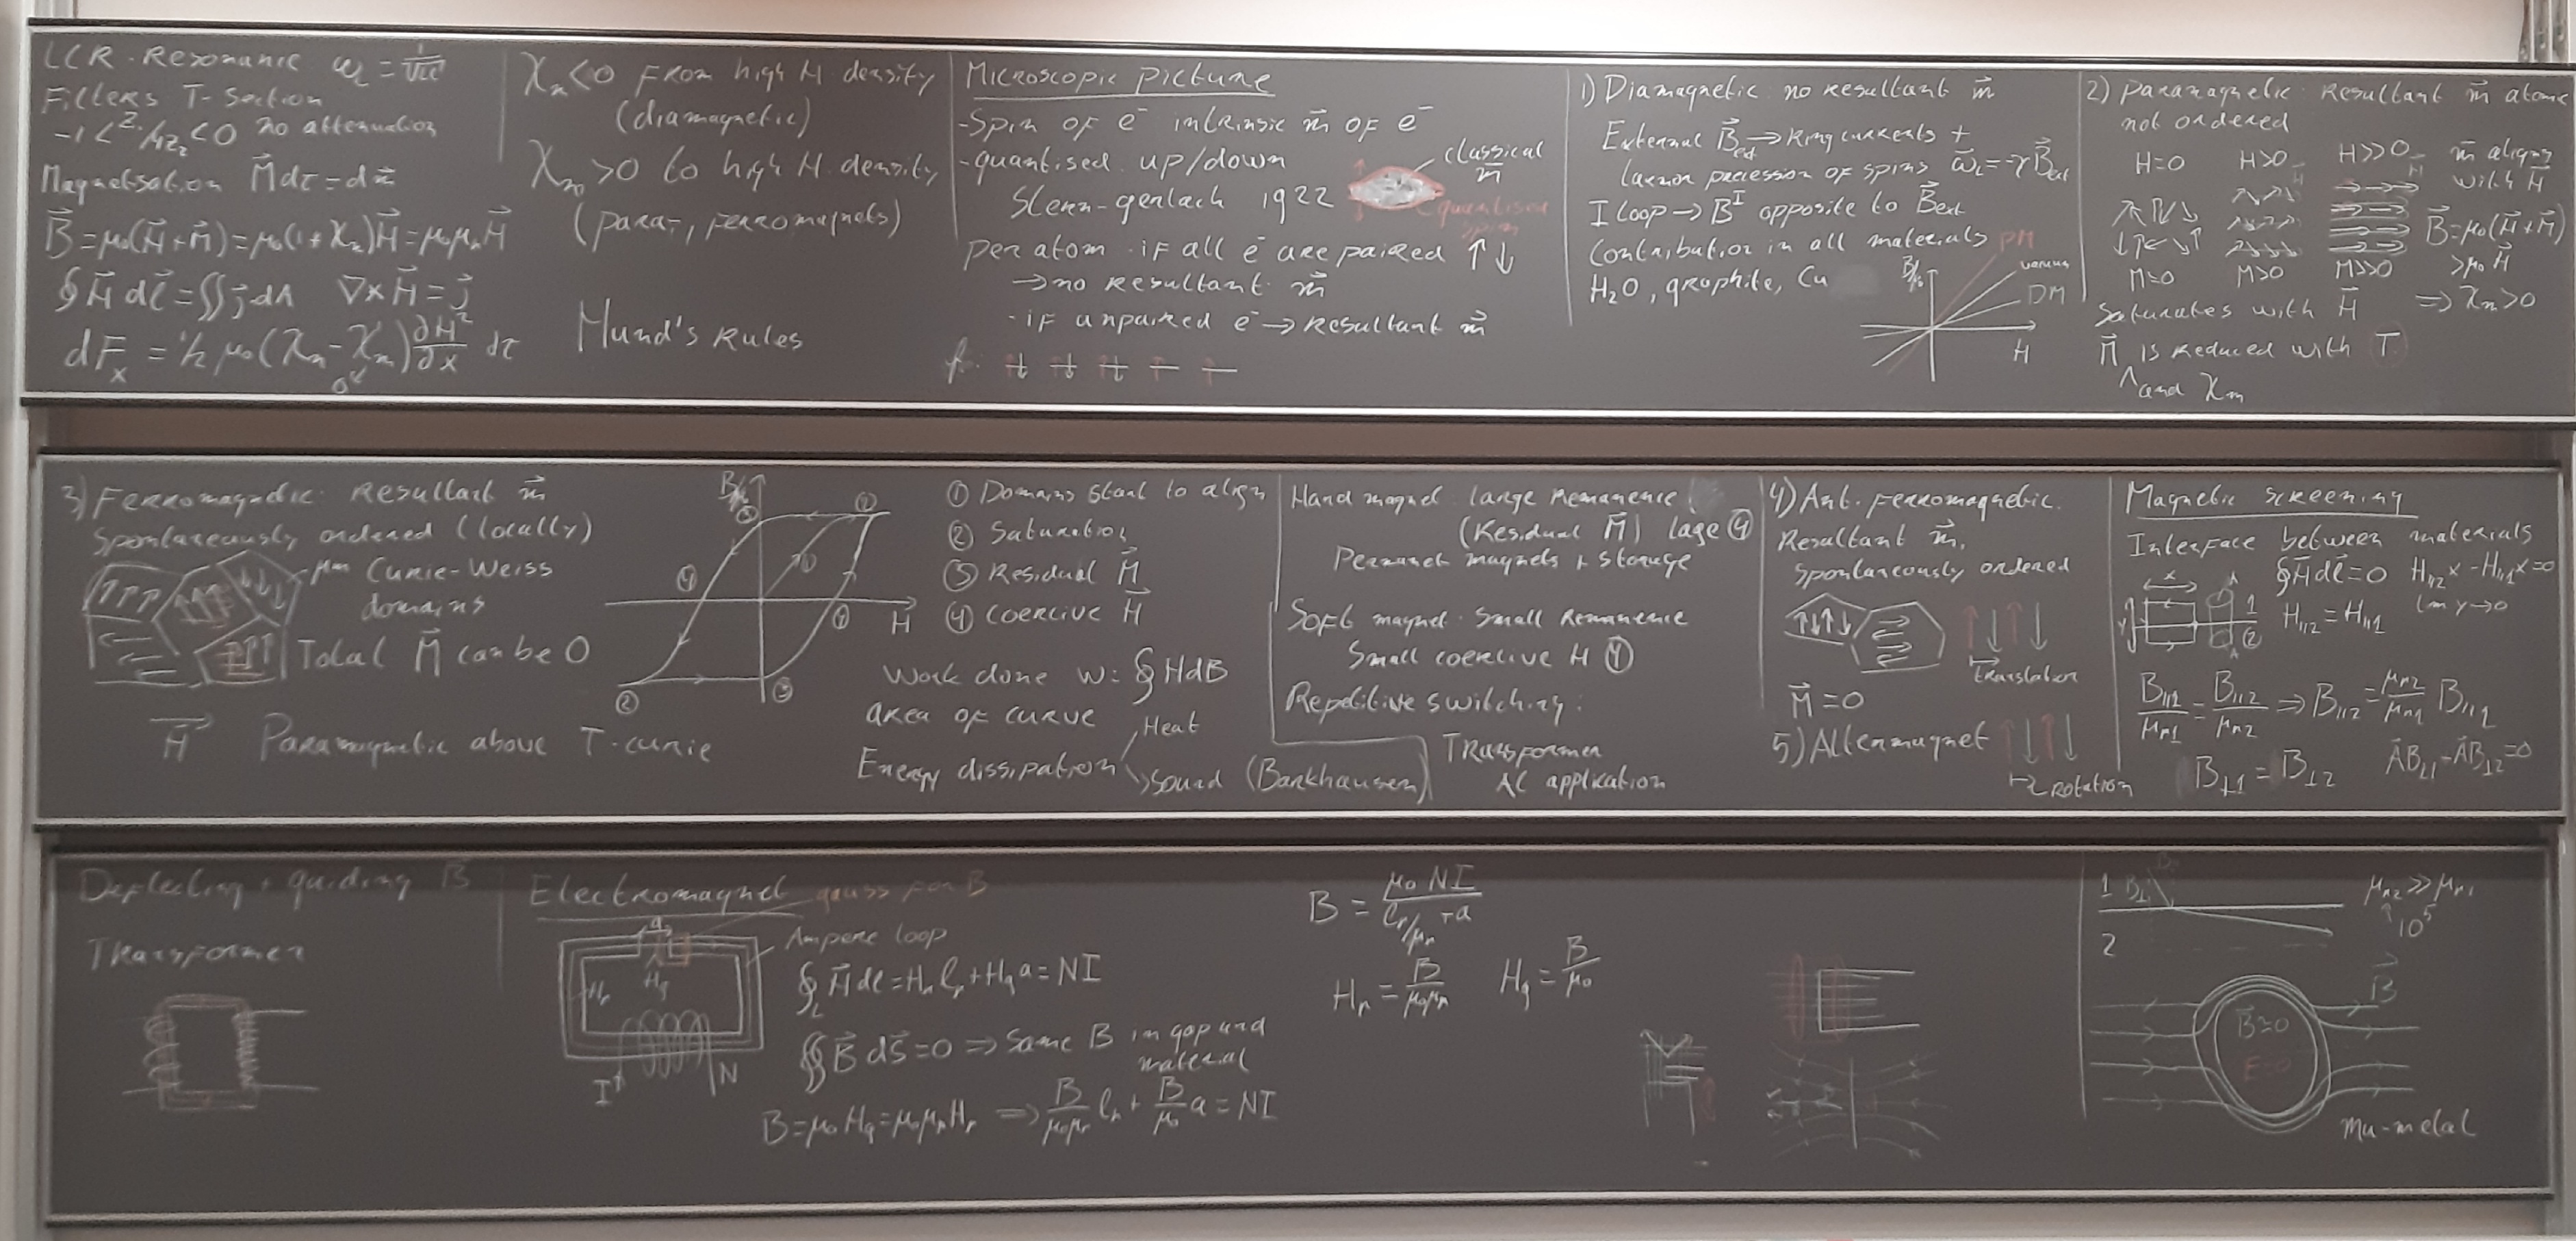 LCR. Resonance ω_L = 1/√LC
Filters T-section
-1 < Z₁/4Z₂ < 0 no attenuation
Magnetisation M⃗ dτ = dm⃗
B⃗ = μ₀(H⃗+M⃗) = μ₀(1+χₘ)H⃗ = μ₀μᵣH⃗
∮ H⃗ dℓ⃗ = ∬ j⃗ dA ∇×H⃗ = j⃗
dFₓ = ½ μ₀(χₘ - χₘ) ∂H²/∂x dτ
0
χₘ < 0 From high H density
(diamagnetic)
χₘ > 0 to high H. density
(para-, ferromagnets)
Hund's Rules
Microscopic picture
- Spin of e⁻ intrinsic m⃗ of e⁻
- quantised up/down
Stern-gerlach 1922
classical m⃗
quantised spin
per atom · if all e⁻ are paired ↑↓
→ no resultant m⃗
· if unpaired e⁻ → resultant m⃗
1) Diamagnetic no resultant m⃗
External B⃗ext → Ring currents +
Larmor precession of spins ω⃗_L = -γB⃗ext
I loop → B⃗ᴵ opposite to B⃗ext
Contribution in all materials
H₂O, graphite, Cu
PM
B/μ₀
vacuum
DM
H
2) paramagnetic Resultant m⃗ atomic
not ordered
H=0 H>0 H≫0
m⃗ aligns
with H⃗
B⃗ = μ₀(H⃗+M⃗)
> μ₀ H⃗
M=0 M>0 M≫0
Saturates with H⃗ ⇒ χₘ>0
M⃗ is reduced with T
^ and χₘ
3) Ferromagnetic Resultant m⃗
Spontaneously ordered (locally)
μm Curie-Weiss
domains
Total M⃗ can be 0
H⃗ Paramagnetic above T-curie
B/μ₀
③ ②
④ ①
④ H
② ③
① Domains start to align
② Saturation
③ Residual M⃗
④ Coercive H⃗
Work done w = ∮ H dB
area of curve
Energy dissipation
Heat
Sound (Barkhausen)
Hard magnet large Remanence
(Residual M⃗) lage ④
Permanet magnets + storage
Soft magnet · Small Remanence
Small coercive H ④
Repetitive switching:
Transformer
AC application
4) Anti ferromagnetic.
Resultant m⃗,
spontaneously ordered
translation
M⃗ = 0
5) Altermagnet
rotation
Magnetic screening
Interface between materials
x y 1 ② A A
∮ H⃗ dℓ⃗ = 0 H∥₂x - H∥₁x = 0
H∥₂ = H∥₁ lim y→0
B∥₁/μᵣ₁ = B∥₂/μᵣ₂ ⇒ B∥₂ = μᵣ₂/μᵣ₁ B∥₁
B⊥₁ = B⊥₂ A⃗B⊥₁ - A⃗B⊥₂ = 0
Deflecting + guiding B
Transformer
Electromagnet gauss for B
a
Hᵣ Hg
I N
Ampere loop
∮_L H⃗ dℓ = Hᵣℓᵣ + Hg a = NI
∯ B⃗ dS⃗ = 0 ⇒ Same B in gap and
material
B = μ₀Hg = μ₀μᵣHᵣ ⇒ B/μ₀μᵣ ℓᵣ + B/μ₀ a = NI
B = μ₀ NI / (ℓᵣ/μᵣ + a)
Hᵣ = B/μ₀μᵣ Hg = B/μ₀
1 B⊥
2
μᵣ₂ ≫ μᵣ₁
↑
10⁵
B⃗
B⃗≃0
E=0
mu-metal